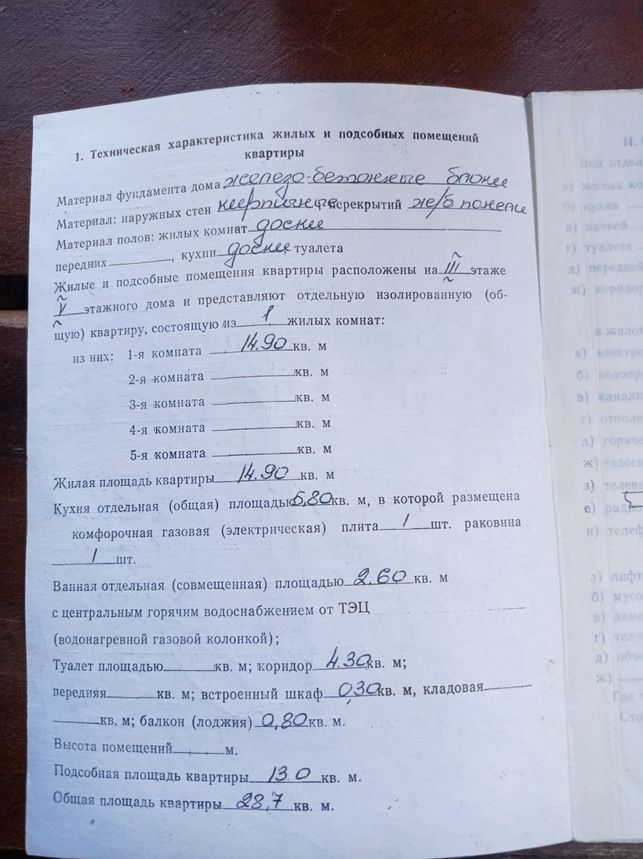 1. Техническая характеристика жилых и подсобных помещений
квартиры
Материал фундамента дома железо-бетонные блоки
Материал: наружных стен кирпичные перекрытий ж/б понели
Материал полов: жилых комнат доски
передних________, кухни доски, туалета
Жилые и подсобные помещения квартиры расположены на III этаже
V этажного дома и представляют отдельную изолированную (об-
щую) квартиру, состоящую из 1 жилых комнат:
из них: 1-я комната 14.90 кв. м
2-я комната ________ кв. м
3-я комната ________ кв. м
4-я комната ________ кв. м
5-я комната ________ кв. м
Жилая площадь квартиры 14.90 кв. м
Кухня отдельная (общая) площадью 5,80 кв. м, в которой размещена
комфорочная газовая (электрическая) плита 1 шт. раковина
1 шт.
Ванная отдельная (совмещенная) площадью 2.60 кв. м
с центральным горячим водоснабжением от ТЭЦ
(водонагревной газовой колонкой);
Туалет площадью______кв. м; коридор 4.30 кв. м;
передняя______ кв. м; встроенный шкаф 0,30 кв. м, кладовая______
______кв. м; балкон (лоджия) 0,80 кв. м.
Высота помещений______м.
Подсобная площадь квартиры 13.0 кв. м.
Общая площадь квартиры 28,7 кв. м.
II.
а) жилых
б) кухни
в) ванной
г) туалета
д) передней
ж) коридор
в жилом
а) электро
б) водопро
в) канали
г) отопле
д) горяче
ж) газосн
з) телеви
е) ради
и) телеф
а) лифт
б) мусо